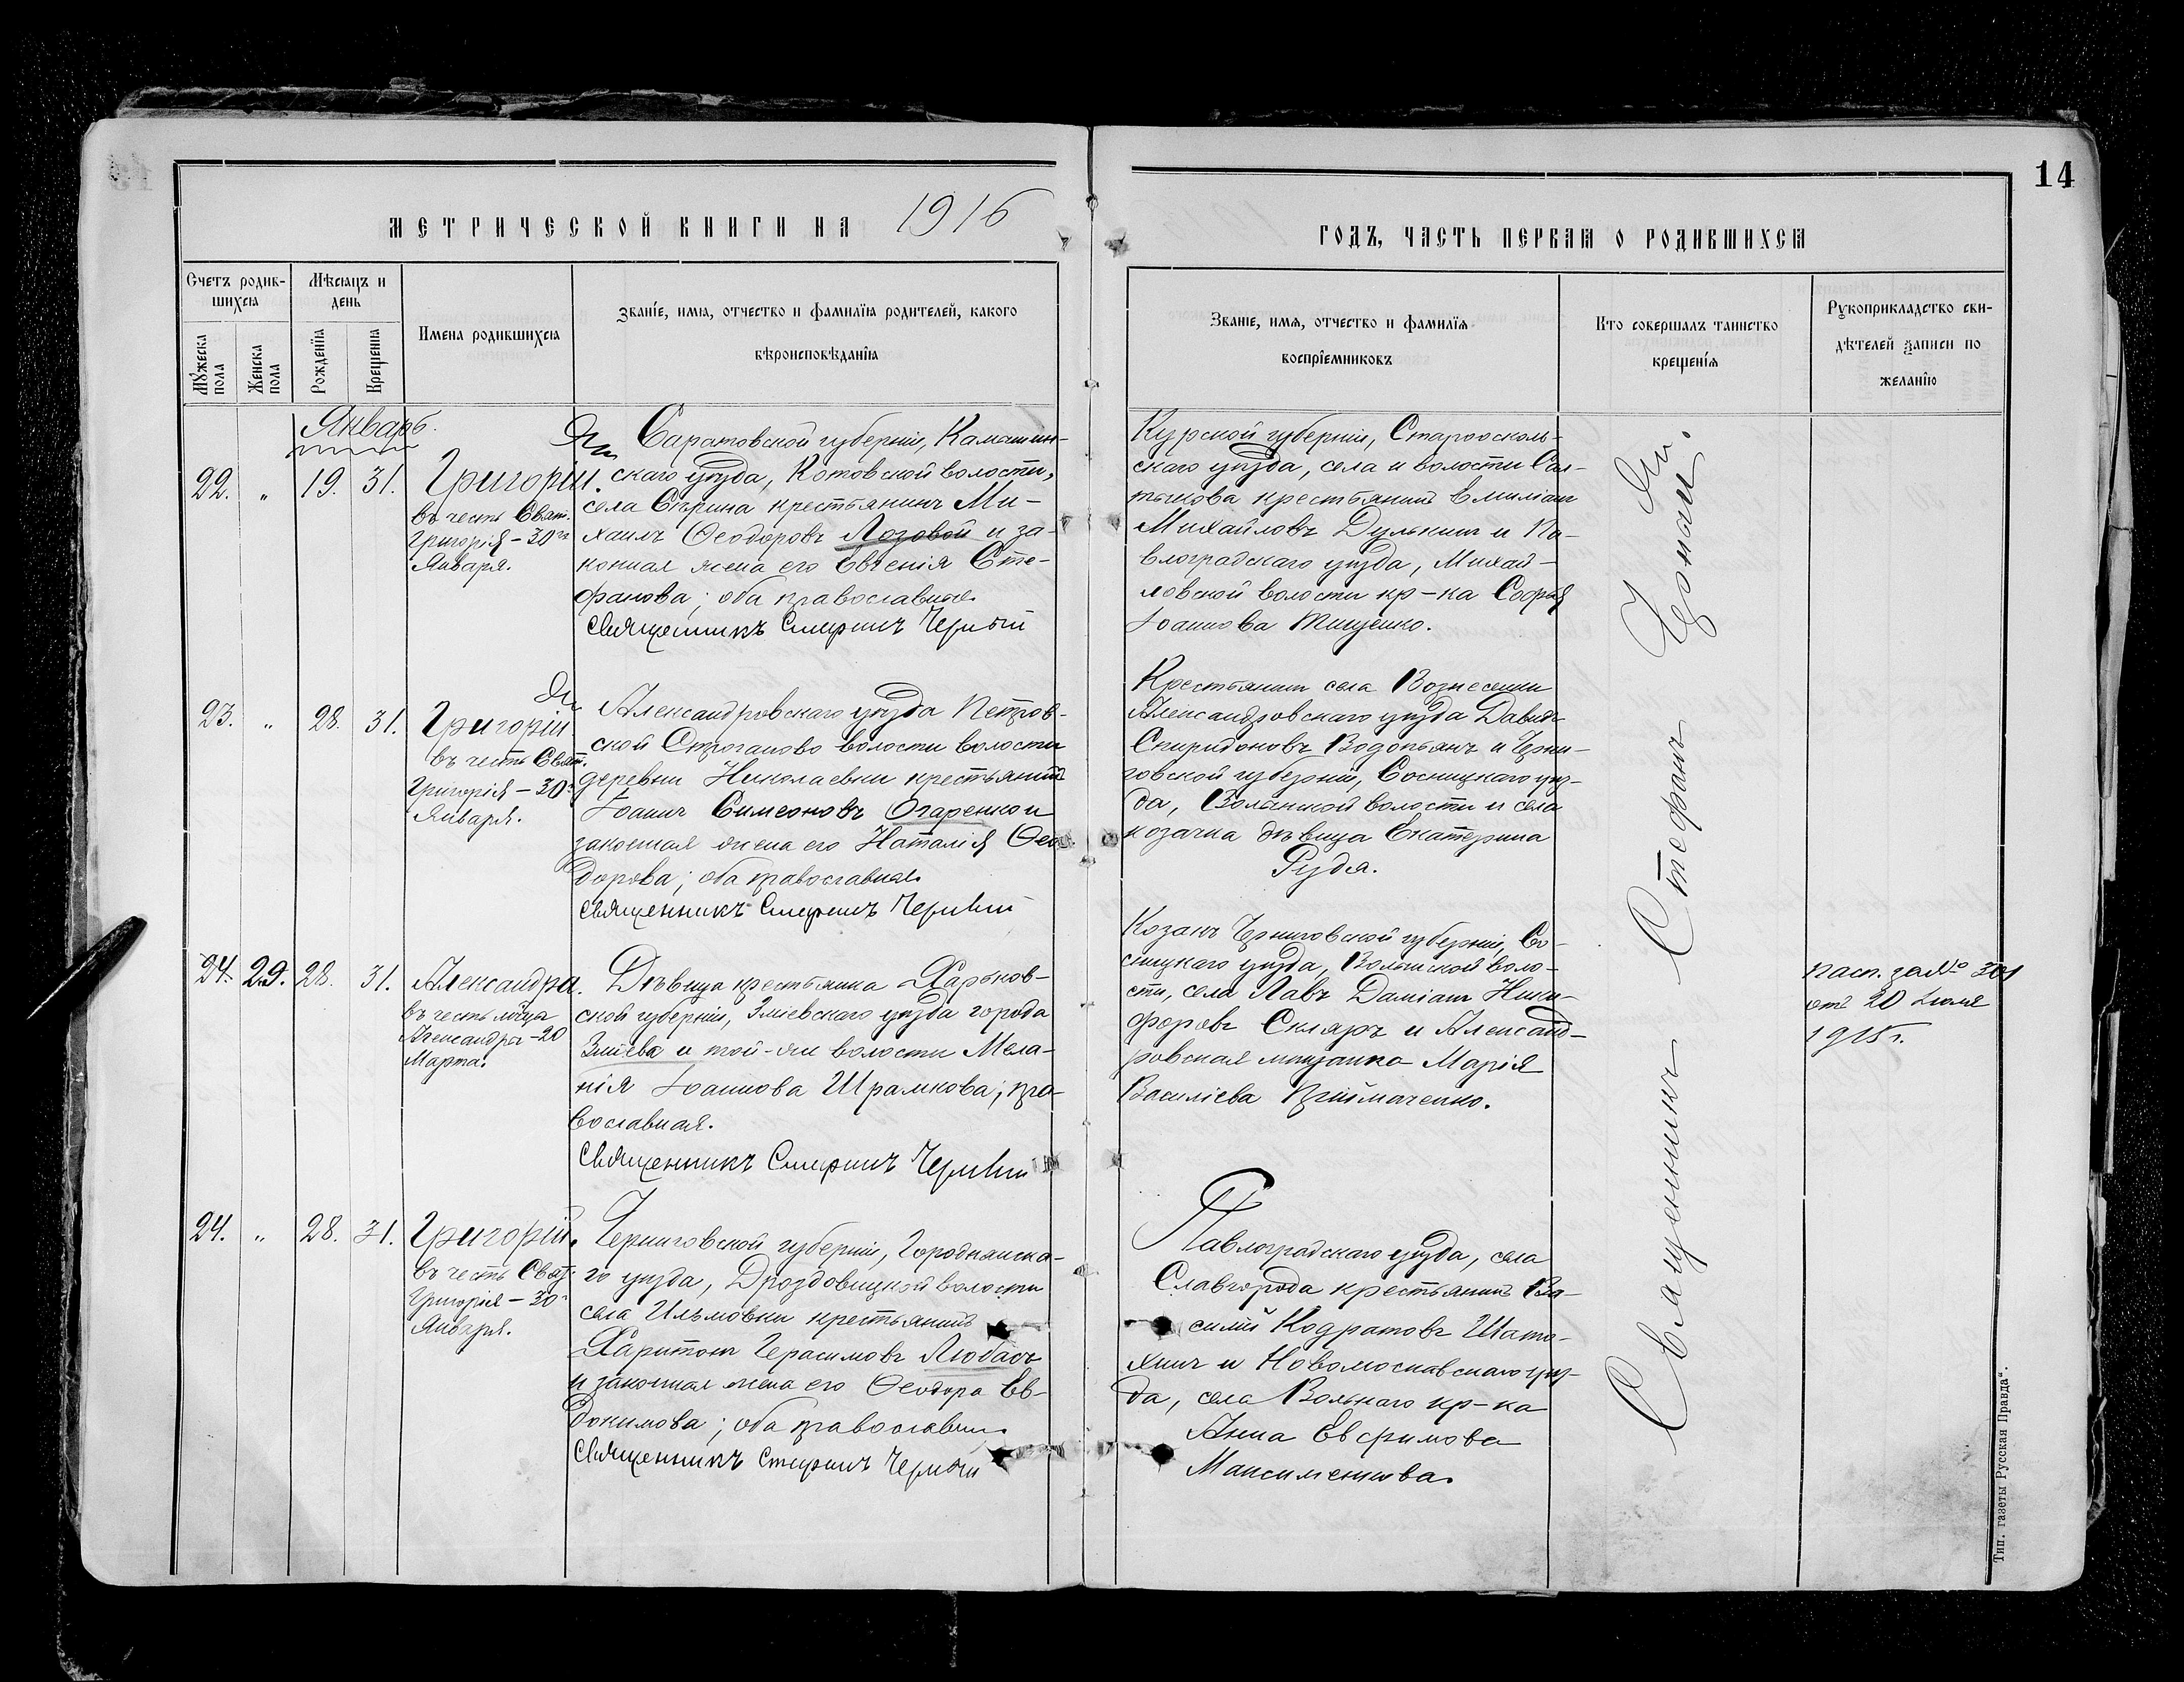 14
МЕТРИЧЕСКОЙ КНИГИ НА 1916
ГОДЪ, ЧАСТЬ ПЕРВАЯ О РОДИВШИХСЯ
Счетъ родив-
шихся
Мужеска пола
Женска пола
Мѣсяцъ и
день
Рожденія
Крещенія
Имена родившихся
Званіе, имя, отчество и фамилія родителей, какого
вѣроисповѣданія
Званіе, имя, отчество и фамилія
воспріемниковъ
Кто совершалъ таинство
крещенія
Рукоприкладство сви-
дѣтелей записи по
желанію
Январь.
22. „ 19. 31. Григорій.
въ честь Свят.
Григорія – 30го
Января.
Саратовской губерніи, Камышин-
скаго уѣзда, Котовской волости,
села крестьянинъ Ми-
хаилъ Ѳеодоровъ Лозовой и за-
конная жена его Евгенія Сте-
фанова; оба православные.
Священникъ Стефанъ
Курской губерніи, Старооскол-
скаго уѣзда, села и волости Сал-
тыкова крестьянинъ Емиліанъ
Михайловъ Дулькинъ и Па-
влоградскаго уѣзда, Михай-
ловской волости кр-ка Софія
Іоаннова Тищенко.
23. „ 28. 31. Григорій
въ честь Свят.
Григорія – 30го
Января.
Александровскаго уѣзда Петров-
ской Строганово волости волости
деревни Николаевки крестьянинъ
Іоаннъ Симеоновъ Огаренко и
законная жена его Наталія Ѳео-
дорова; оба православные.
Священникъ Стефанъ
Крестьянинъ села Вознесенки
Александровскаго уѣзда Давидъ
Спиридоновъ Водопьянъ и Черни-
говской губерніи, Сосницкаго уѣз-
да, Волынской волости и села
козачка дѣвица Екатерина
Рудя.
24. 29. 28. 31. Александра.
въ честь мч҃ца
Александра – 20
Марта.
Дѣвица крестьянка Харьков-
ской губерніи, Зміевскаго уѣзда города
Зміева и той-же волости Мела-
нія Іоаннова Шрамкова; пра-
вославная.
Священникъ Стефанъ
Козакъ Черниговской губерніи, Со-
сницкаго уѣзда, Волынской воло-
сти, села Лавъ Даміанъ Ники-
форовъ Скляръ и Александ-
ровская мѣщанка Марія
Василіева Пріймаченко.
пасп. за № 301
отъ 20 Іюля
1915 г.
24. „ 28. 31. Григорій.
въ честь Свят.
Григорія – 30го
Января.
Черниговской губерніи, Городнянска-
го уѣзда, Дроздовицкой волости
села Ильмовки крестьянинъ
Харитонъ Герасимовъ Любасъ
и законная жена его Ѳеодора Ев-
докимова; оба православные.
Священникъ Стефанъ
Павлоградскаго уѣзда, села
Славгорода крестьянинъ Ва-
силій Кодратовъ Шато-
хинъ и Новомосковскаго уѣз-
да, села Вольнаго кр-ка
Анна Евфимова
Максименкова.
Священникъ Стефанъ
Тип. газеты „Русская Правда“.